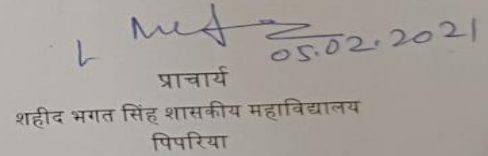 05.02.2021
प्राचार्य
शहीद भगत सिंह शासकीय महाविद्यालय
पिपरिया